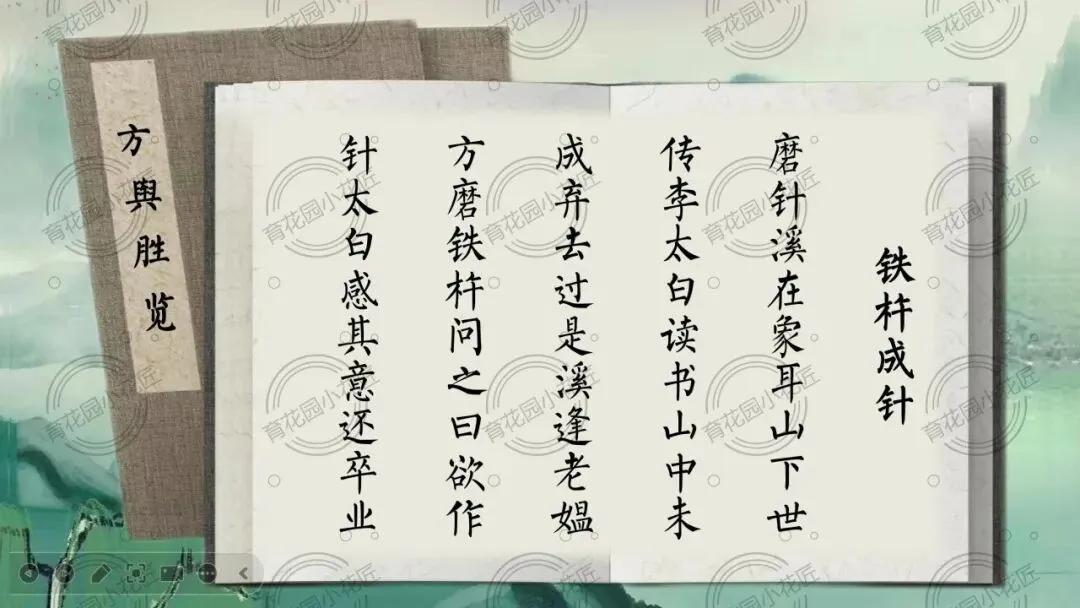 铁杵成针
磨针溪在象耳山下世
传李太白读书山中未
成弃去过是溪逢老媪
方磨铁杵问之曰欲作
针太白感其意还卒业
方舆胜览
育花园小花匠